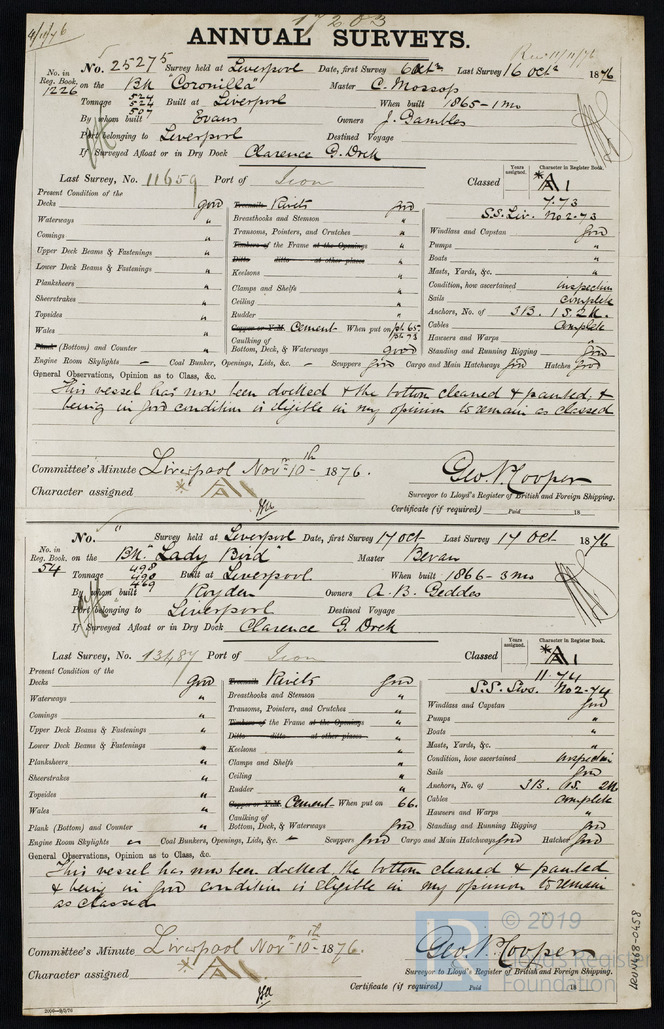 17203
4/11/76
ANNUAL SURVEYS.
No. in
Reg. Book.
1226
No. 25275 Survey held at Liverpool Date, first Survey 6 Octr Last Survey 16 Octr 1876
on the Bk "Coronilla" Master C. Mossop
Tonnage 524 Built at Liverpool When built 1865-1 mo
524
507
By whom built Evans Owners J. Gambles
Port belonging to Liverpool Destined Voyage
If Surveyed Afloat or in Dry Dock Clarence G. Dock
Last Survey, No. 11659 Port of Classed
Years assigned.
Character in Register Book.
*A1
7.73
S.S. Liv. No 2-73
Present Condition of the
Decks good
Waterways "
Comings "
Upper Deck Beams & Fastenings "
Lower Deck Beams & Fastenings "
Planksheers "
Sheerstrakes "
Topsides "
Wales "
Plank (Bottom) and Counter "
Treenails Rivets good
Breasthooks and Stemson "
Transoms, Pointers, and Crutches "
Timbers of the Frame at the Openings "
Ditto ditto at other places "
Keelsons "
Clamps and Shelfs "
Ceiling "
Rudder "
Copper or Y.M. Cement When put on pt 65
pt 73
Caulking of
Bottom, Deck, & Waterways good
Windlass and Capstan good
Pumps "
Boats "
Masts, Yards, &c. "
Condition, how ascertained inspection
Sails complete
Anchors, No. of 3B. 1S. 2K.
Cables complete
Hawsers and Warps "
Standing and Running Rigging good
Engine Room Skylights - Coal Bunker, Openings, Lids, &c. - Scuppers good Cargo and Main Hatchways good Hatches good
General Observations, Opinion as to Class, &c.
This vessel has now been docked & the bottom cleaned & painted, &
being in good condition is eligible in my opinion to remain as classed
Committee's Minute Liverpool Novr 10th 1876.
Character assigned * A1
Geo. N. Cooper
Surveyor to Lloyd's Register of British and Foreign Shipping.
Certificate (if required) Paid 18
No. " Survey held at Liverpool Date, first Survey 17 Oct Last Survey 17 Oct 1876
No. in
Reg. Book.
54
on the Bk. "Lady Bird" Master Bevan
Tonnage 498 Built at Liverpool When built 1866-3 mo
498
469
By whom built Royden Owners A. B. Geddes
Port belonging to Liverpool Destined Voyage
If Surveyed Afloat or in Dry Dock Clarence G. Dock
Last Survey, No. 13487 Port of Classed
Years assigned.
Character in Register Book.
*A1
11.74
S.S. No 2-74
Present Condition of the
Decks good
Waterways "
Comings "
Upper Deck Beams & Fastenings "
Lower Deck Beams & Fastenings "
Planksheers "
Sheerstrakes "
Topsides "
Wales "
Plank (Bottom) and Counter "
Treenails Rivets good
Breasthooks and Stemson "
Transoms, Pointers, and Crutches "
Timbers of the Frame at the Openings "
Ditto ditto at other places "
Keelsons "
Clamps and Shelfs "
Ceiling "
Rudder "
Copper or Y.M. Cement When put on 66.
Caulking of
Bottom, Deck, & Waterways good
Windlass and Capstan good
Pumps "
Boats "
Masts, Yards, &c. "
Condition, how ascertained inspection
Sails good
Anchors, No. of 3B. 1S. 2K
Cables complete
Hawsers and Warps "
Standing and Running Rigging good
Engine Room Skylights - Coal Bunkers, Openings, Lids, &c. - Scuppers good Cargo and Main Hatchways good Hatches good
General Observations, Opinion as to Class, &c.
This vessel has now been docked the bottom cleaned & painted
& being in good condition is eligible in my opinion to remain
as classed
Committee's Minute Liverpool Novr 10th 1876.
Character assigned * A1
Geo. N. Cooper
Surveyor to Lloyd's Register of British and Foreign Shipping.
Certificate (if required) Paid 18
© 2019
Lloyd's Register
Foundation
LRUN468-0458